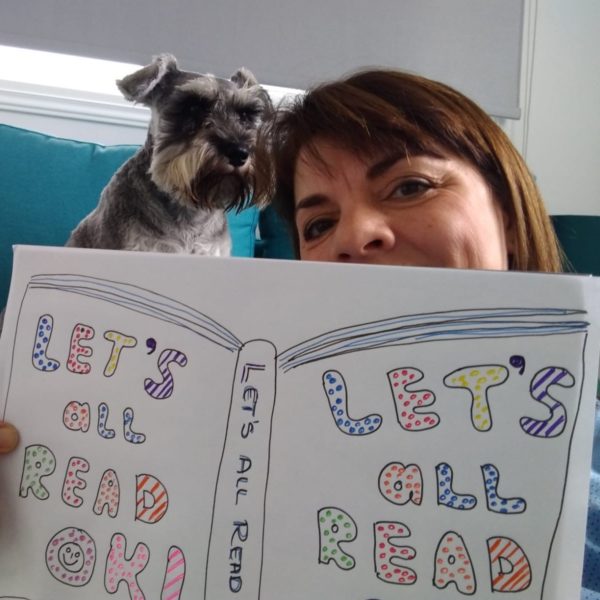 LET'S
aLL
READ
OKI
LET'S ALL READ
LET'S
aLL
READ